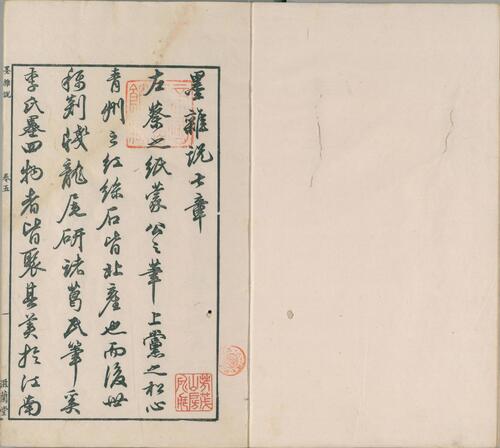 墨雜說七章
左蔡之紙蒙公之筆上黨之松心
青州之紅絲石皆北產也而後世
稱剡牋龍尾研諸葛氏筆奚
李氏墨四物者皆聚其美於江南
墨雜說
卷五
一
滋蘭堂